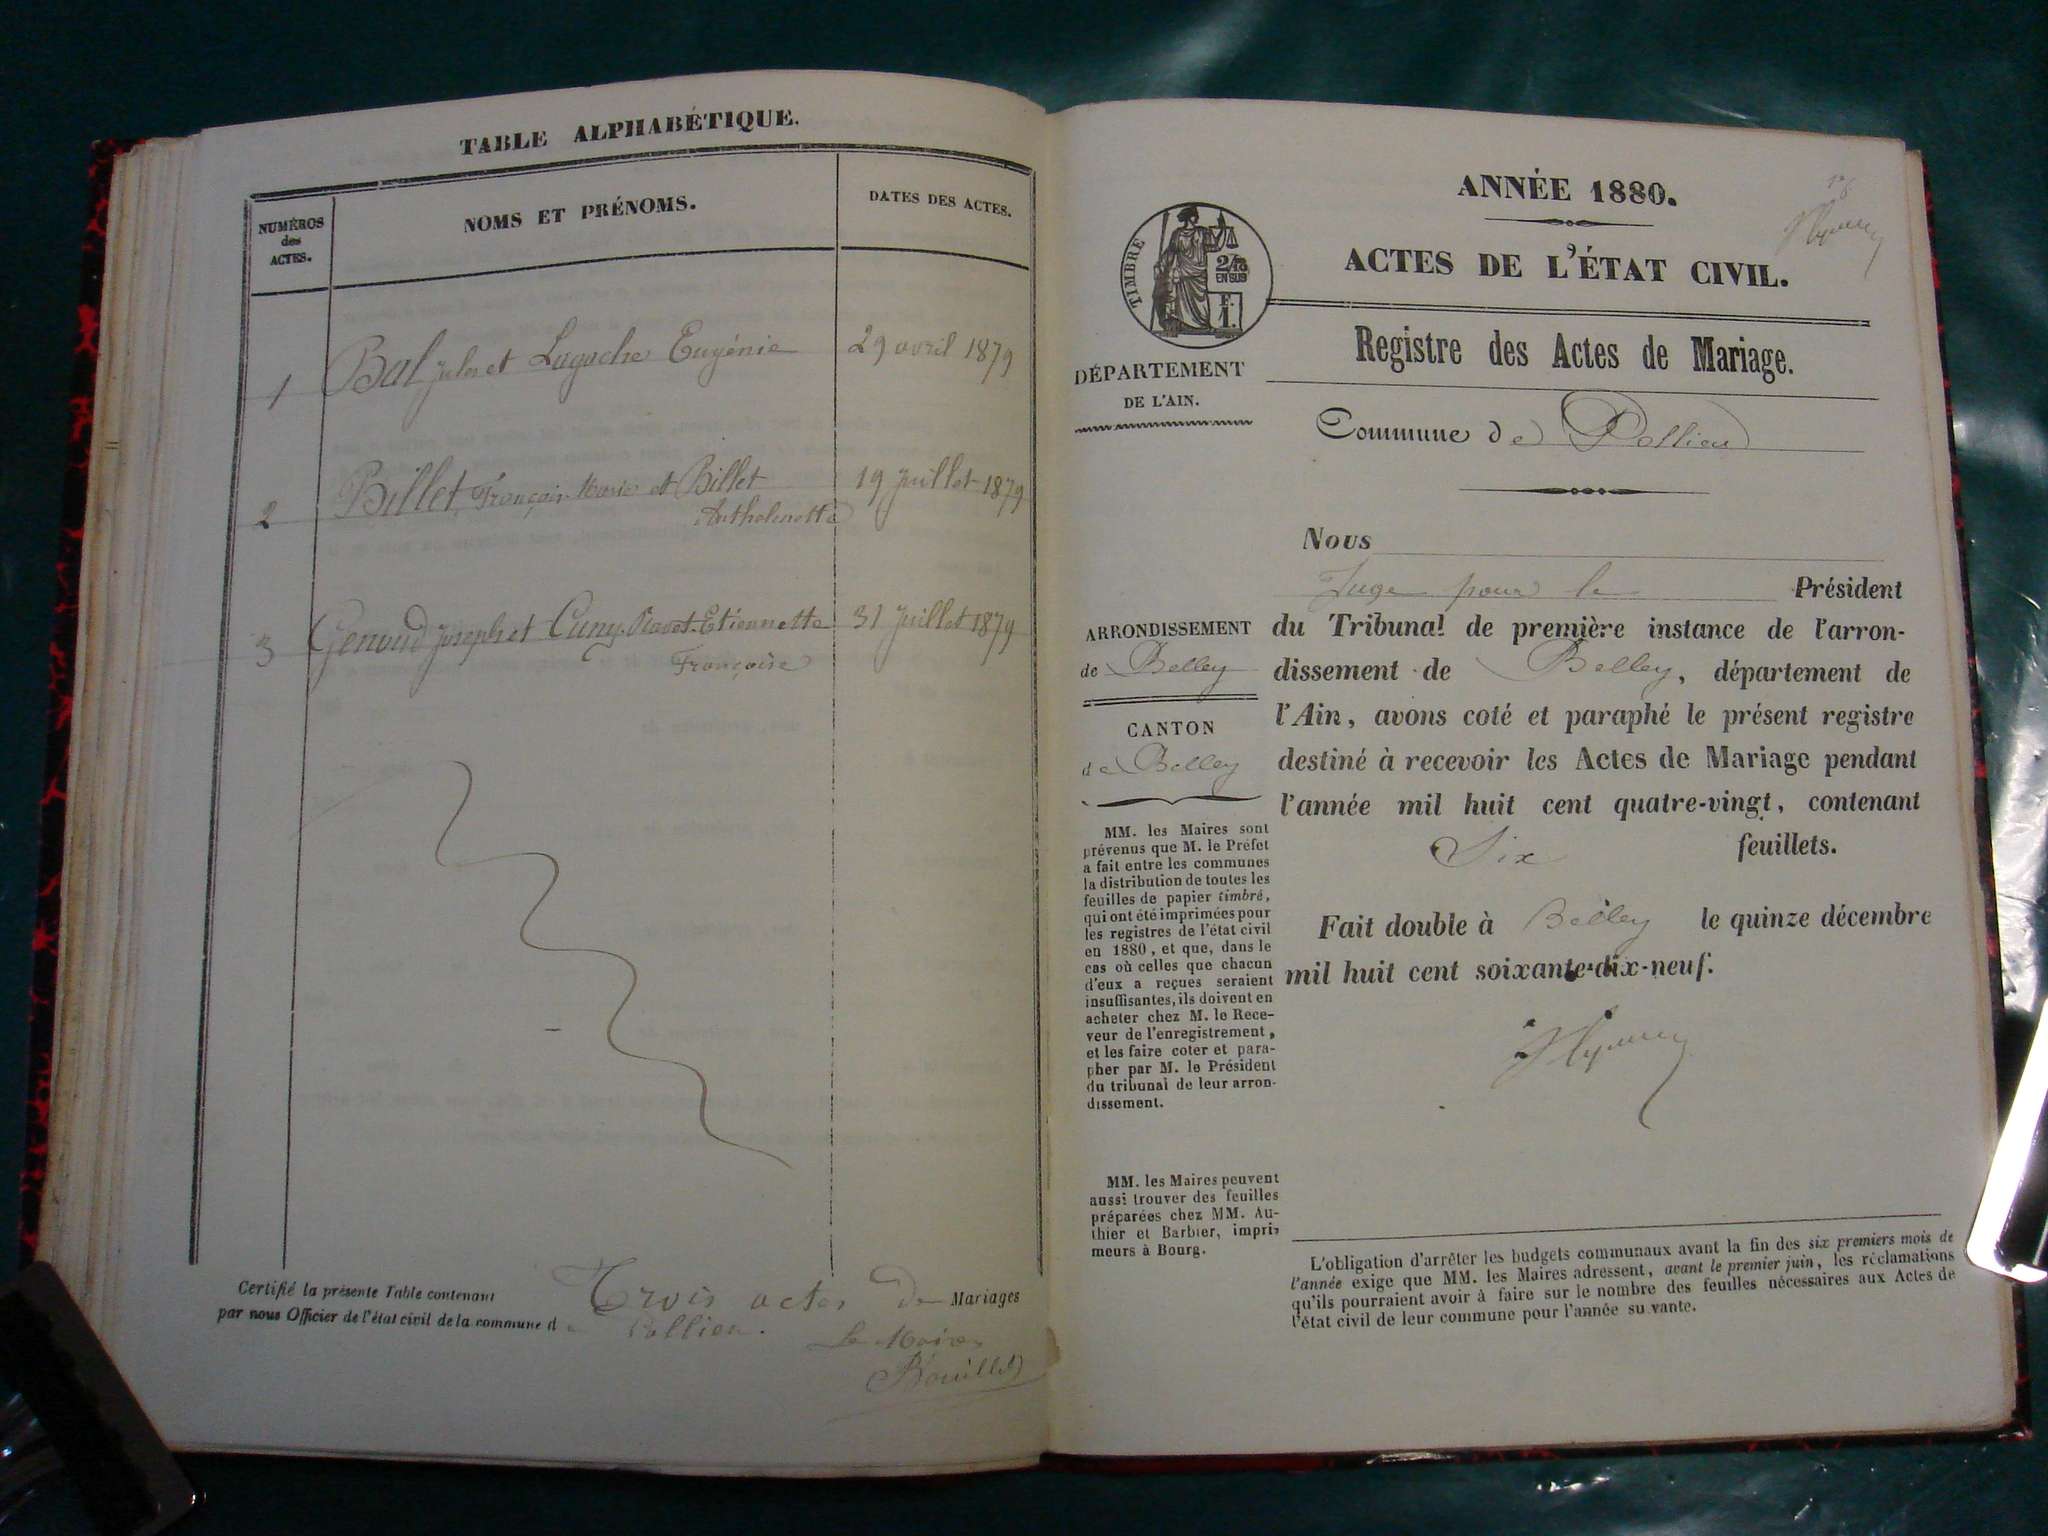 TABLE ALPHABÉTIQUE.
NUMÉROS
des
ACTES.
NOMS ET PRÉNOMS.
DATES DES ACTES.
1 Bal Jules et Lagache Eugénie 29 avril 1879
2 Billet François Marie et Billet 19 Juillet 1879
Anthelmette
3 Genoud Joseph et Cuny Ravet Etiennette 31 Juillet 1879
Françoise
Certifié la présente Table contenant Trois actes de Mariages
par nous Officier de l'état civil de la commune de Pollieu.
Le Maire
Bouillet
ANNÉE 1880.
ACTES DE L'ÉTAT CIVIL.
TIMBRE
2/10
EN SUS
F.
1.
Registre des Actes de Mariage.
DÉPARTEMENT
DE L'AIN.
Commune de Pollieu
Nous
Juge pour le Président
du Tribunal de première instance de l'arron-
dissement de Belley, département de
l'Ain, avons coté et paraphé le présent registre
destiné à recevoir les Actes de Mariage pendant
l'année mil huit cent quatre-vingt, contenant
Six feuillets.
Fait double à Belley le quinze décembre
mil huit cent soixante-dix-neuf.
ARRONDISSEMENT
de Belley
CANTON
de Belley
MM. les Maires sont
prévenus que M. le Préfet
a fait entre les communes
la distribution de toutes les
feuilles de papier timbré,
qui ont été imprimées pour
les registres de l'état civil
en 1880, et que, dans le
cas où celles que chacun
d'eux a reçues seraient
insuffisantes, ils doivent en
acheter chez M. le Rece-
veur de l'enregistrement,
et les faire coter et para-
pher par M. le Président
du tribunal de leur arron-
dissement.
MM. les Maires peuvent
aussi trouver des feuilles
préparées chez MM. Au-
thier et Barbier, impri-
meurs à Bourg.
L'obligation d'arrêter les budgets communaux avant la fin des six premiers mois de
l'année exige que MM. les Maires adressent, avant le premier juin, les réclamations
qu'ils pourraient avoir à faire sur le nombre des feuilles nécessaires aux Actes de
l'état civil de leur commune pour l'année su vante.